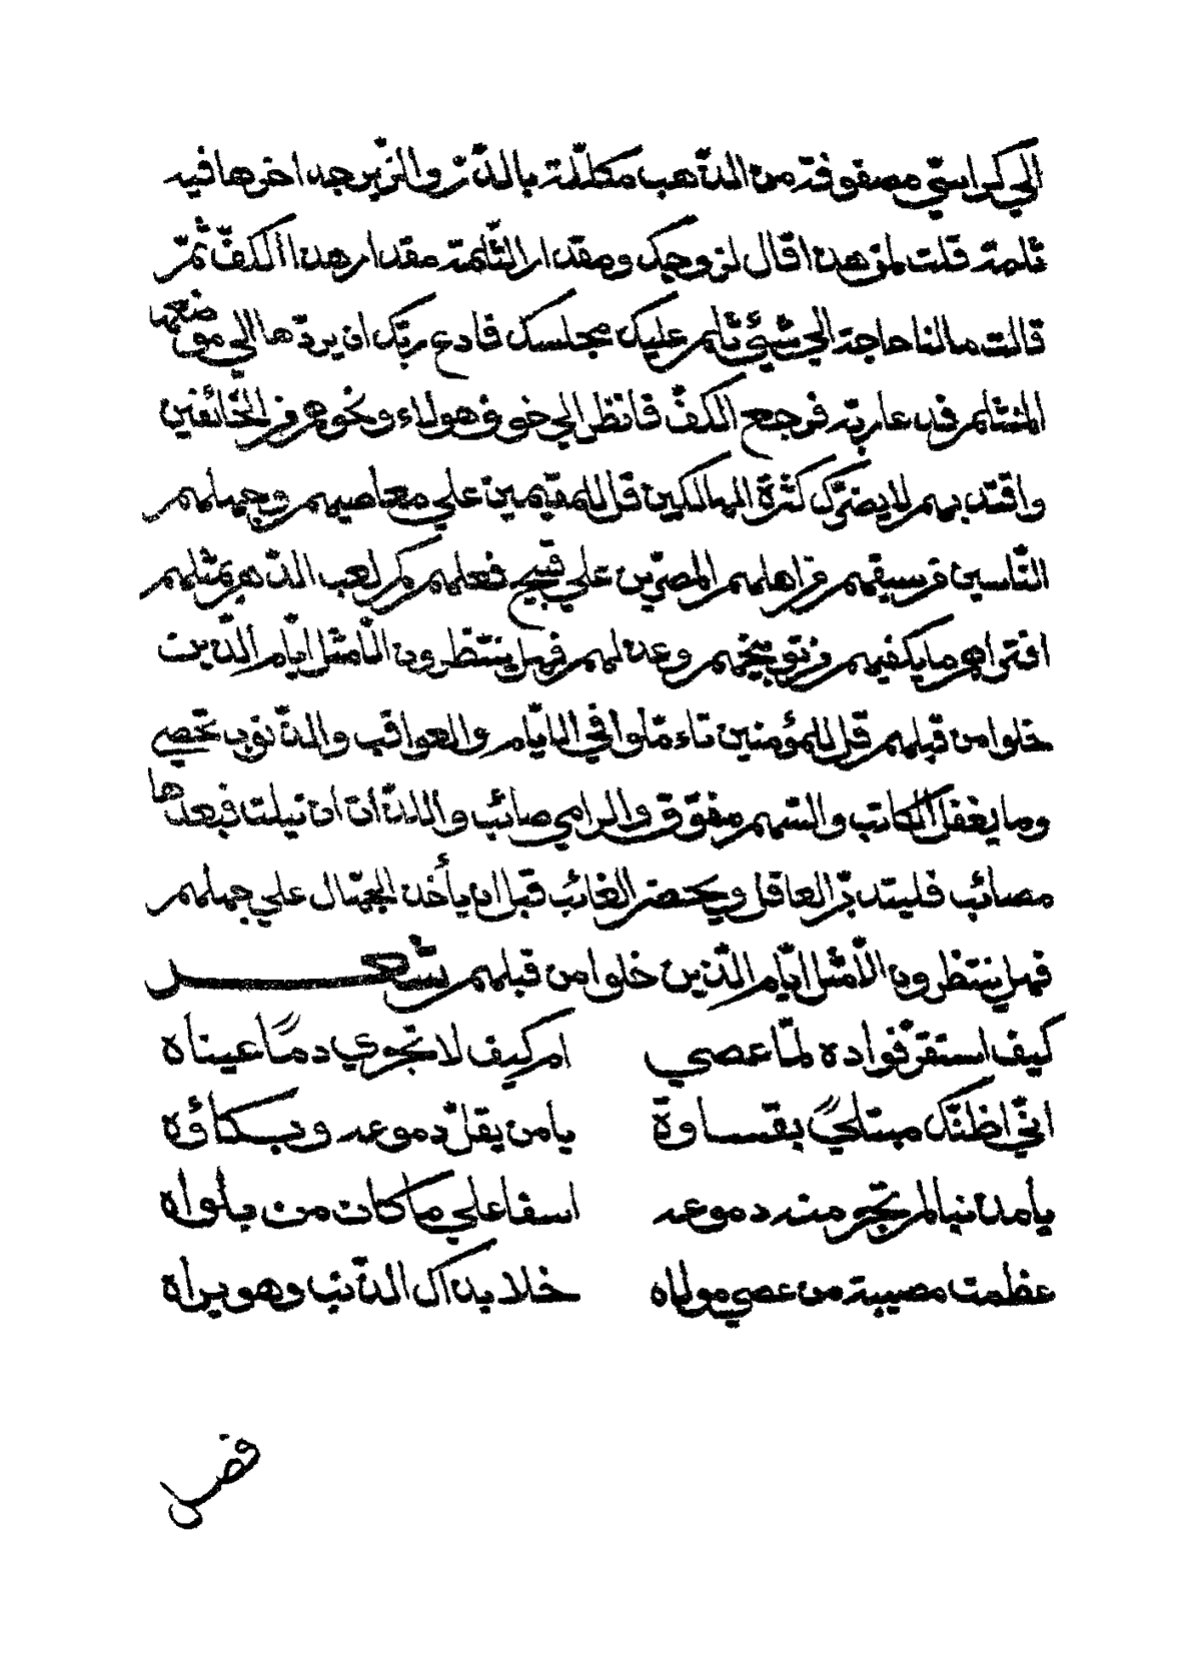 الي كراسيّ مصفوفة من الذّهب مكلّلة بالدّرّ والزّبرجد اخرها فيه
ثلمة قلت لمن هذا قال لزوجك ومقدار الثّلمة مقدار هذا الكفّ ثمّ
قالت مالنا حاجة الي شيئ ثلم عليك مجلسك فادع ربّك ان يردّها الي موضعها
المنثلم فدعا ربّه فرجع الكفّ فانظر الي خوف هولاء ونحوهم من الخائفين
واقتد بهم لا يضرّك كثرة الهالكين قل للمقيمين علي معاصيهم وجهلهم
النّاسين من سبقهم من اهلهم المصرّين علي قبيح فعلهم كم لعب الدّهر بمثلهم
افترا هم ما يكفيهم من توبيخهم وعذلهم فهل ينتظرون الّا مثل ايّام الّذين
خلوا من قبلهم قل للمؤمنين تاءمّلوا في الايّام والعواقب والذّنوب تحصي
وما يغفل الكاتب والسّهم مفوّق والرامي صائب واللذّات ان نيلت فبعدها
مصائب فليتدبّر العاقل ويحضر الغائب قبل ان يأخذ الجهّال علي جهلهم
فهل ينتظرون الاّ مثل ايّام الّذين خلوا من قبلهم شعر
كيف استقرّ فواده لمّا عصي ام كيف لا تجوي دمًا عيناه
انّي اظنّك مبتلًي بقساوة يا من يقلّ دموعه وبكاؤه
يا مذنبا لم تجر منه دموعه اسفا علي ما كان من بلواه
عظمت مصيبة من عصي مولاه خلا بذاك الذّنب وهو يراه
فصل